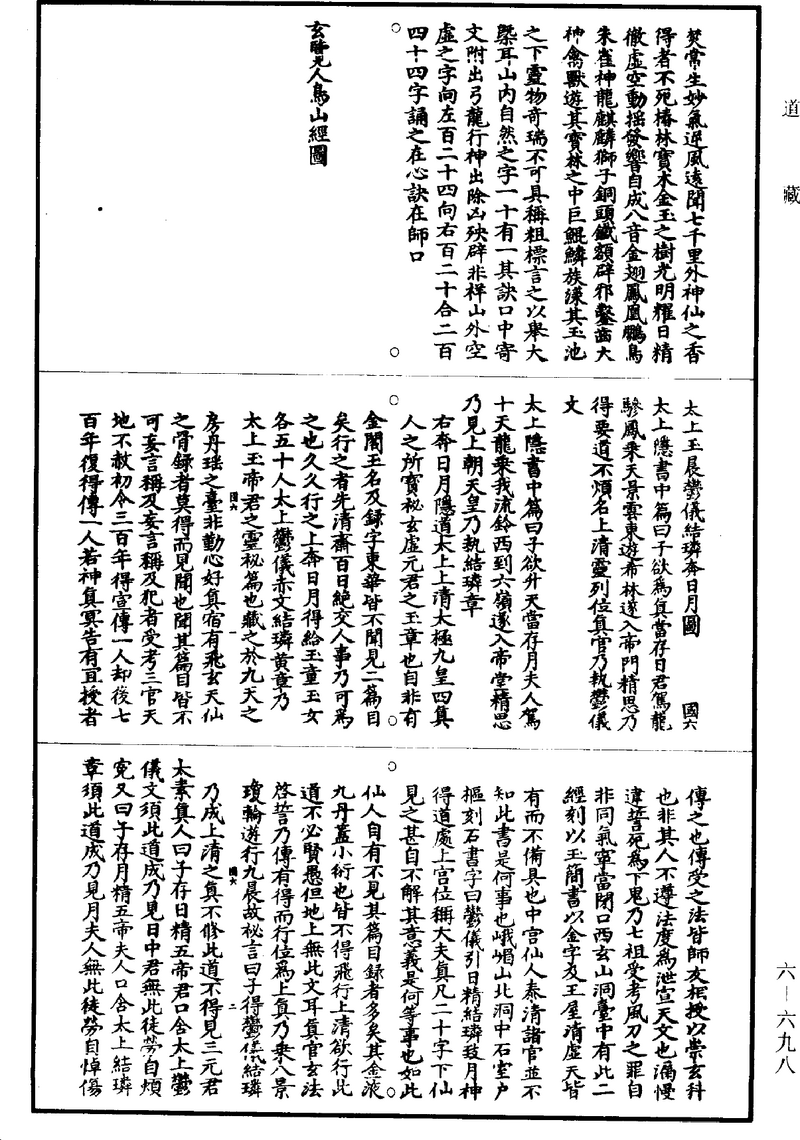 道藏
焚常生妙氣逆風遠聞七千里外神仙之香
得者不死椿林寶木金玉之樹光明耀日精
徹虛空動搖發響自成八音金翅鳳凰鵬鳥
朱雀神龍麒麟獅子銅頭鐵額辟邪鑿齒大
神禽獸遊其寶林之中巨鯤鱗族漾其玉池
之下靈物奇瑞不可具稱粗標言之以舉大
槩耳山內自然之字一十有一其訣口中寄
文附出弓龍行神出除凶殃辟非祥山外空
虛之字向左百二十四向右百二十合二百
四十四字誦之在心訣在師口
玄覽人鳥山經圖
太上玉晨鬱儀結璘奔日月圖 國六
太上隱書中篇曰子欲為真當存日君駕龍
驂鳳乘天景雲東遊希林遂入帝門精思乃
得要道不煩名上清靈列位真官乃執鬱儀
文
太上隱書中篇曰子欲升天當存月夫人駕
十天龍乘我流鈴西到六嶺遂入帝堂精思
乃見上朝天皇乃執結璘章
右奔日月隱道太上上清太極九皇四真
人之所寶祕玄虛元君之玉章也自非有
金閣玉名及錄字東華皆不聞見二篇目
矣行之者先清齋百日絕交人事乃可為
之也久久行之上奔日月得給玉童玉女
各五十人太上鬱儀赤文結璘黃章乃
太上玉帝君之靈祕篇也藏之於九天之
國六 一
房丹瑤之臺非勤心好真宿有飛玄天仙
之骨錄者莫得而見聞也聞其篇目皆不
可妄言稱及妄言稱及犯者受考三官天
地不赦初令三百年得宣傳一人却後七
百年復得傳一人若神真冥告有宜授者
傳之也傳受之法皆師友相授以崇玄科
也非其人不遵法度為泄宣天文也漏慢
違誓死為下鬼乃七祖受考風刀之罪自
非同氣寧當閉口西玄山洞臺中有此二
經刻以玉簡書以金字及王屋清虛天皆
有而不備具也中宮仙人泰清諸官並不
知此書是何事也峨嵋山北洞中石室戶
樞刻石書字曰鬱儀引日精結璘致月神
得道處上宮位稱大夫真凡二十字下仙
見之甚自不解其意義是何等事也如此
仙人自有不見其篇目錄者多矣其金液
九丹蓋小術也皆不得飛行上清欲行此
道不必賢愚但地上無此文耳真官玄法
啓誓乃傳有得而行位為上真乃乘八景
瓊輪遊行九晨故祕言曰子得鬱儀結璘
國六 二
乃成上清之真不修此道不得見三元君
太素真人曰子存日精五帝君口含太上鬱
儀文須此道成乃見日中君無此徒勞自煩
冤又曰子存月精五帝夫人口含太上結璘
章須此道成乃見月夫人無此徒勞自悼傷
六—六九八